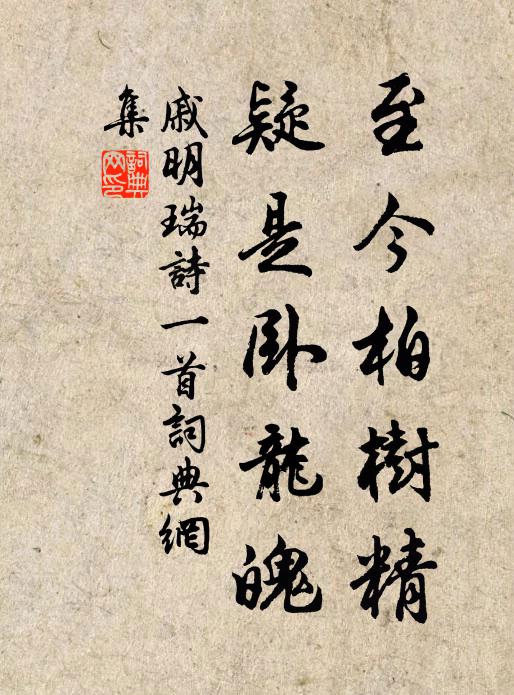 至今柏樹精
疑是卧龍魄
戚明瑞詩一首詞典網
集
詞典网印